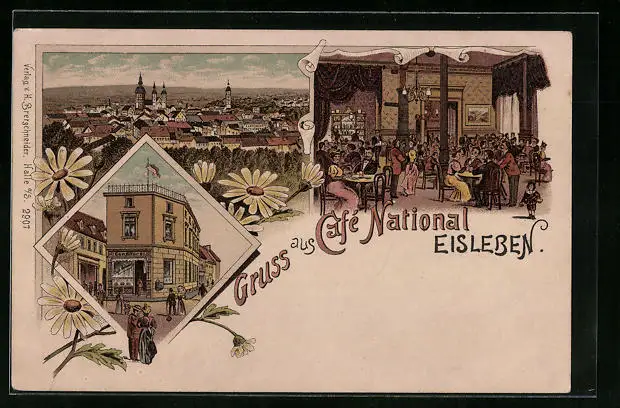 Verlag v. H. Bretschneider, Halle a/S. 2907
Gruss aus Café National
EISLEBEN.